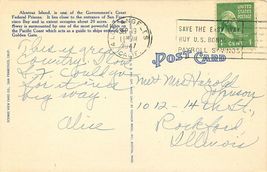 Alcatraz Island, is one of the Government's Court
Federal Prisons. It lies close to the entrance of San Fran-
cisco Bay and is an island occupying about 20 acres.
flower is surmounted by one of the most powerful lights on
the Pacific Coast which acts as a guide to ships entering
Golden Gate.
SAVE THE EASY WAY
BUY U.S. BONDS
PAYROLL
1 CENT 1
POST CARD
This is great
Country. I love
it. Could go
for it in a
big way.
Alice
Mr + Mrs Harold
Johnson
1012-14th St.,
Rockford
Illinois